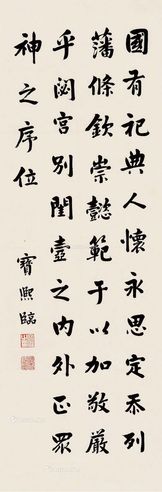 國有祀典人懷永思定祧列
藩條欽崇懿範于以加敬嚴
乎閟宮別閨壼之内外正眾
神之序位
寶熙臨